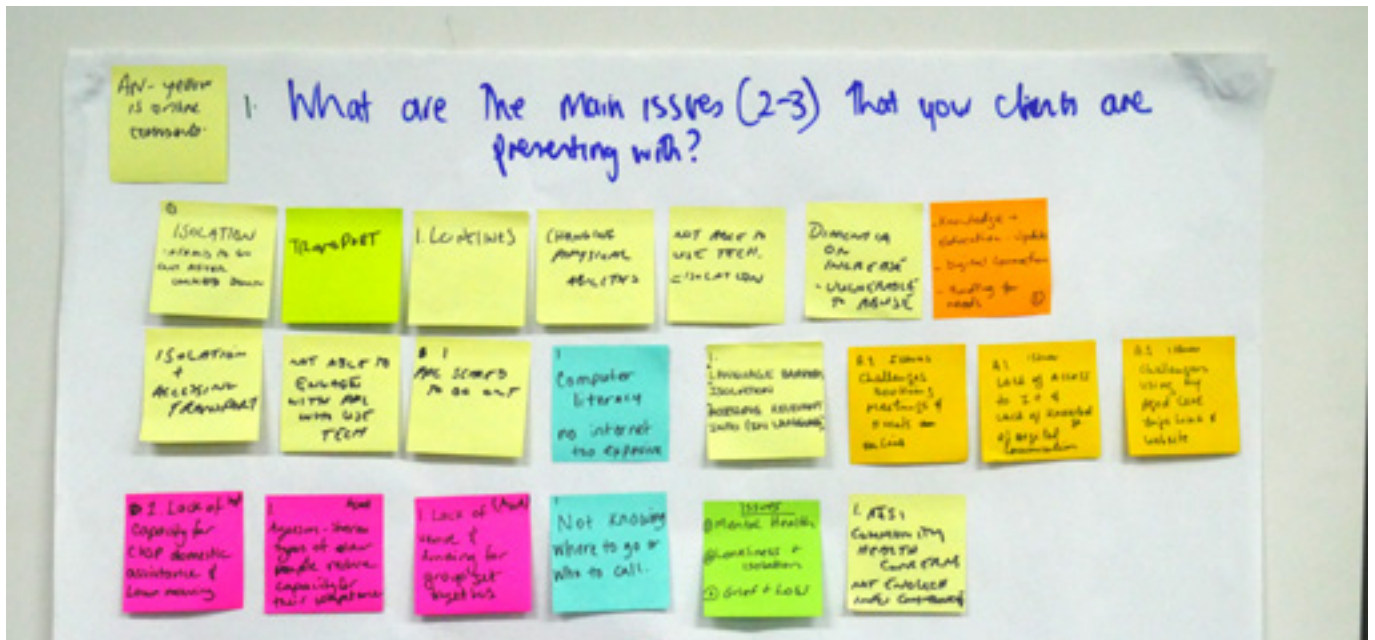 AN - yellow
is online
comments.
1. What are The Main issues (2-3) That you clients are
presenting with?
ISOLATION
DOWN
TRANSPORT
1. LONELINESS
CHANGING
PHYSICAL
ABILITIES
NOT ABLE TO
USE TECH.
= ISOLATION
DEMENTIA
ON
INCREASE
- VULNERABLE
TO ABUSE
- Knowledge +
education update
- Digital Connection
- Funding for
needs
ISOLATION
+
ACCESSING
TRANSPORT
NOT ABLE TO
ENGAGE
WITH PPL
WITH USE
TECH
1
PPL SCARED
TO GO OUT
1
Computer
literacy
no internet
too expensive
1.
LANGUAGE BARRIER,
ISOLATION
ACCESSING RELEVANT
INFO (OWN LANGUAGE)
Q.1 Issues
Challenges
Meetings &
online
Q.1 issue
Lack of Access
to IT &
Lack of
of digital
Communication
Q.1 issue
Challenges
Using My
Aged Care
website
1. Lack of
capacity for
CHSP domestic
assistance &
lawn mowing
1.
Ageism - Stereo
types of older
people reduce
capacity for
their
1. Lack of
venue &
funding for
group get
togethers
1
Not Knowing
Where to go or
Who to call.
Issues
Mental Health
Loneliness +
isolation
Grief + Loss
1.
COMMUNITY
HEALTH
CONCERNS
NOT ENOUGH